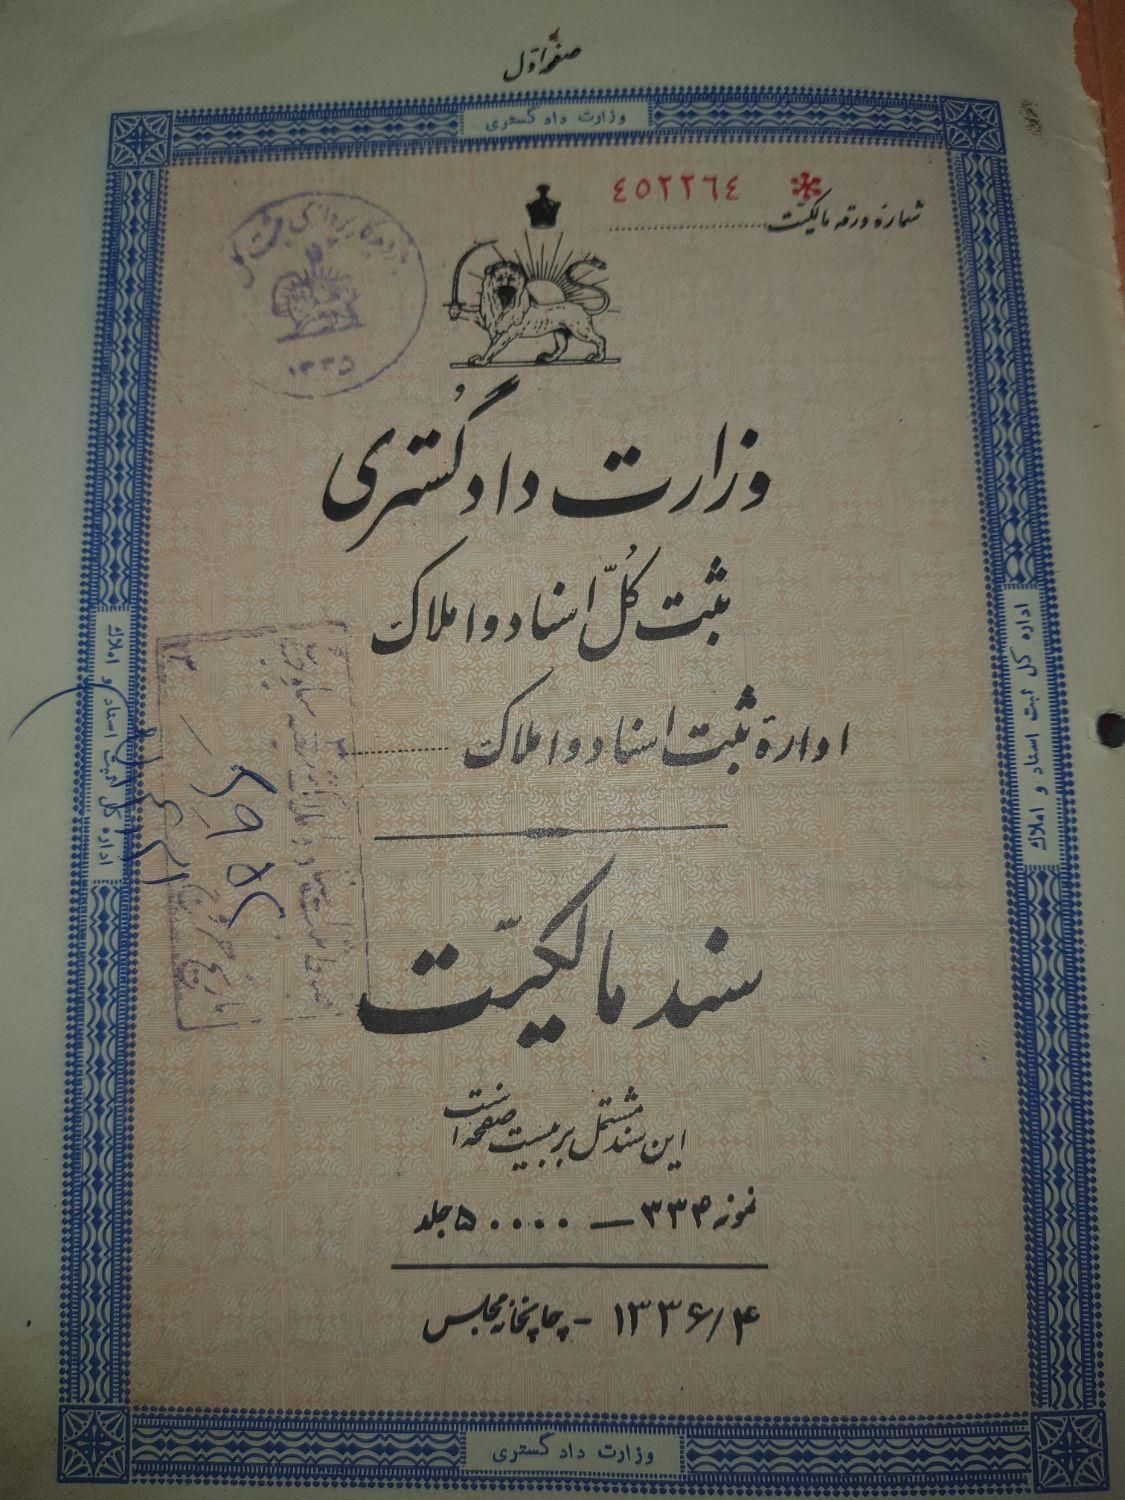 صفحه اول
وزارت دادگستری
٤٥٢٢٦٤
شماره ورقه مالکیّت
۱۳۳۵
وزارت دادگُستری
ثبت کُلّ اسناد و املاک
اداره ثبت اسناد و املاک
سند مالکیّت
این سند مشتمل بر بیست صفحه است
نمونه ۳۳۴ — ۵۰۰۰۰ جلد
۱۳۳۶/۴ - چاپخانه مجلس
وزارت دادگستری
اداره کل ثبت اسناد و املاک
اداره کل ثبت اسناد و املاک